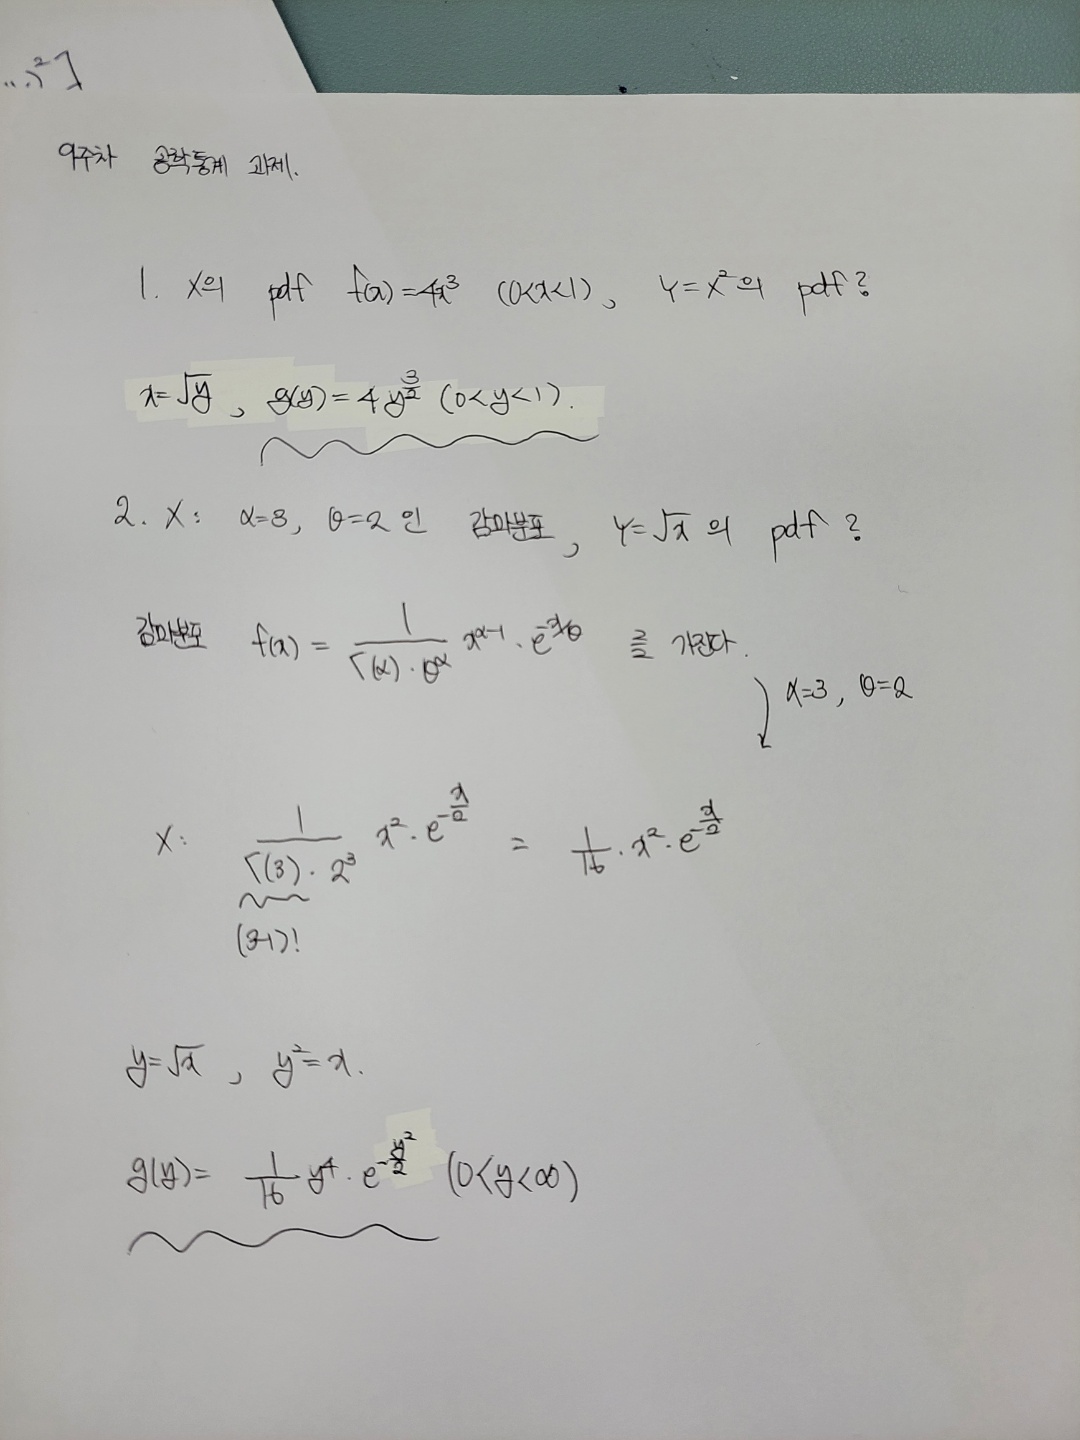 ..)²]
9주차 공학통계 과제.
1. X의 pdf f(x)=4x³ (0<x<1), Y=X²의 pdf?
x=√y, g(y)=4y^(3/2) (0<y<1).
2. X: α=3, θ=2인 감마분포, Y=√x의 pdf?
감마분포 f(x) = 1/(Γ(α)·θ^α) x^(α-1)·e^(-x/θ) 를 가진다.
α=3, θ=2
X: 1/(Γ(3)·2³) x²·e^(-x/2) = 1/16·x²·e^(-x/2)
(3-1)!
y=√x, y²=x.
g(y)= 1/16 y⁴·e^(-y²/2) (0<y<∞)